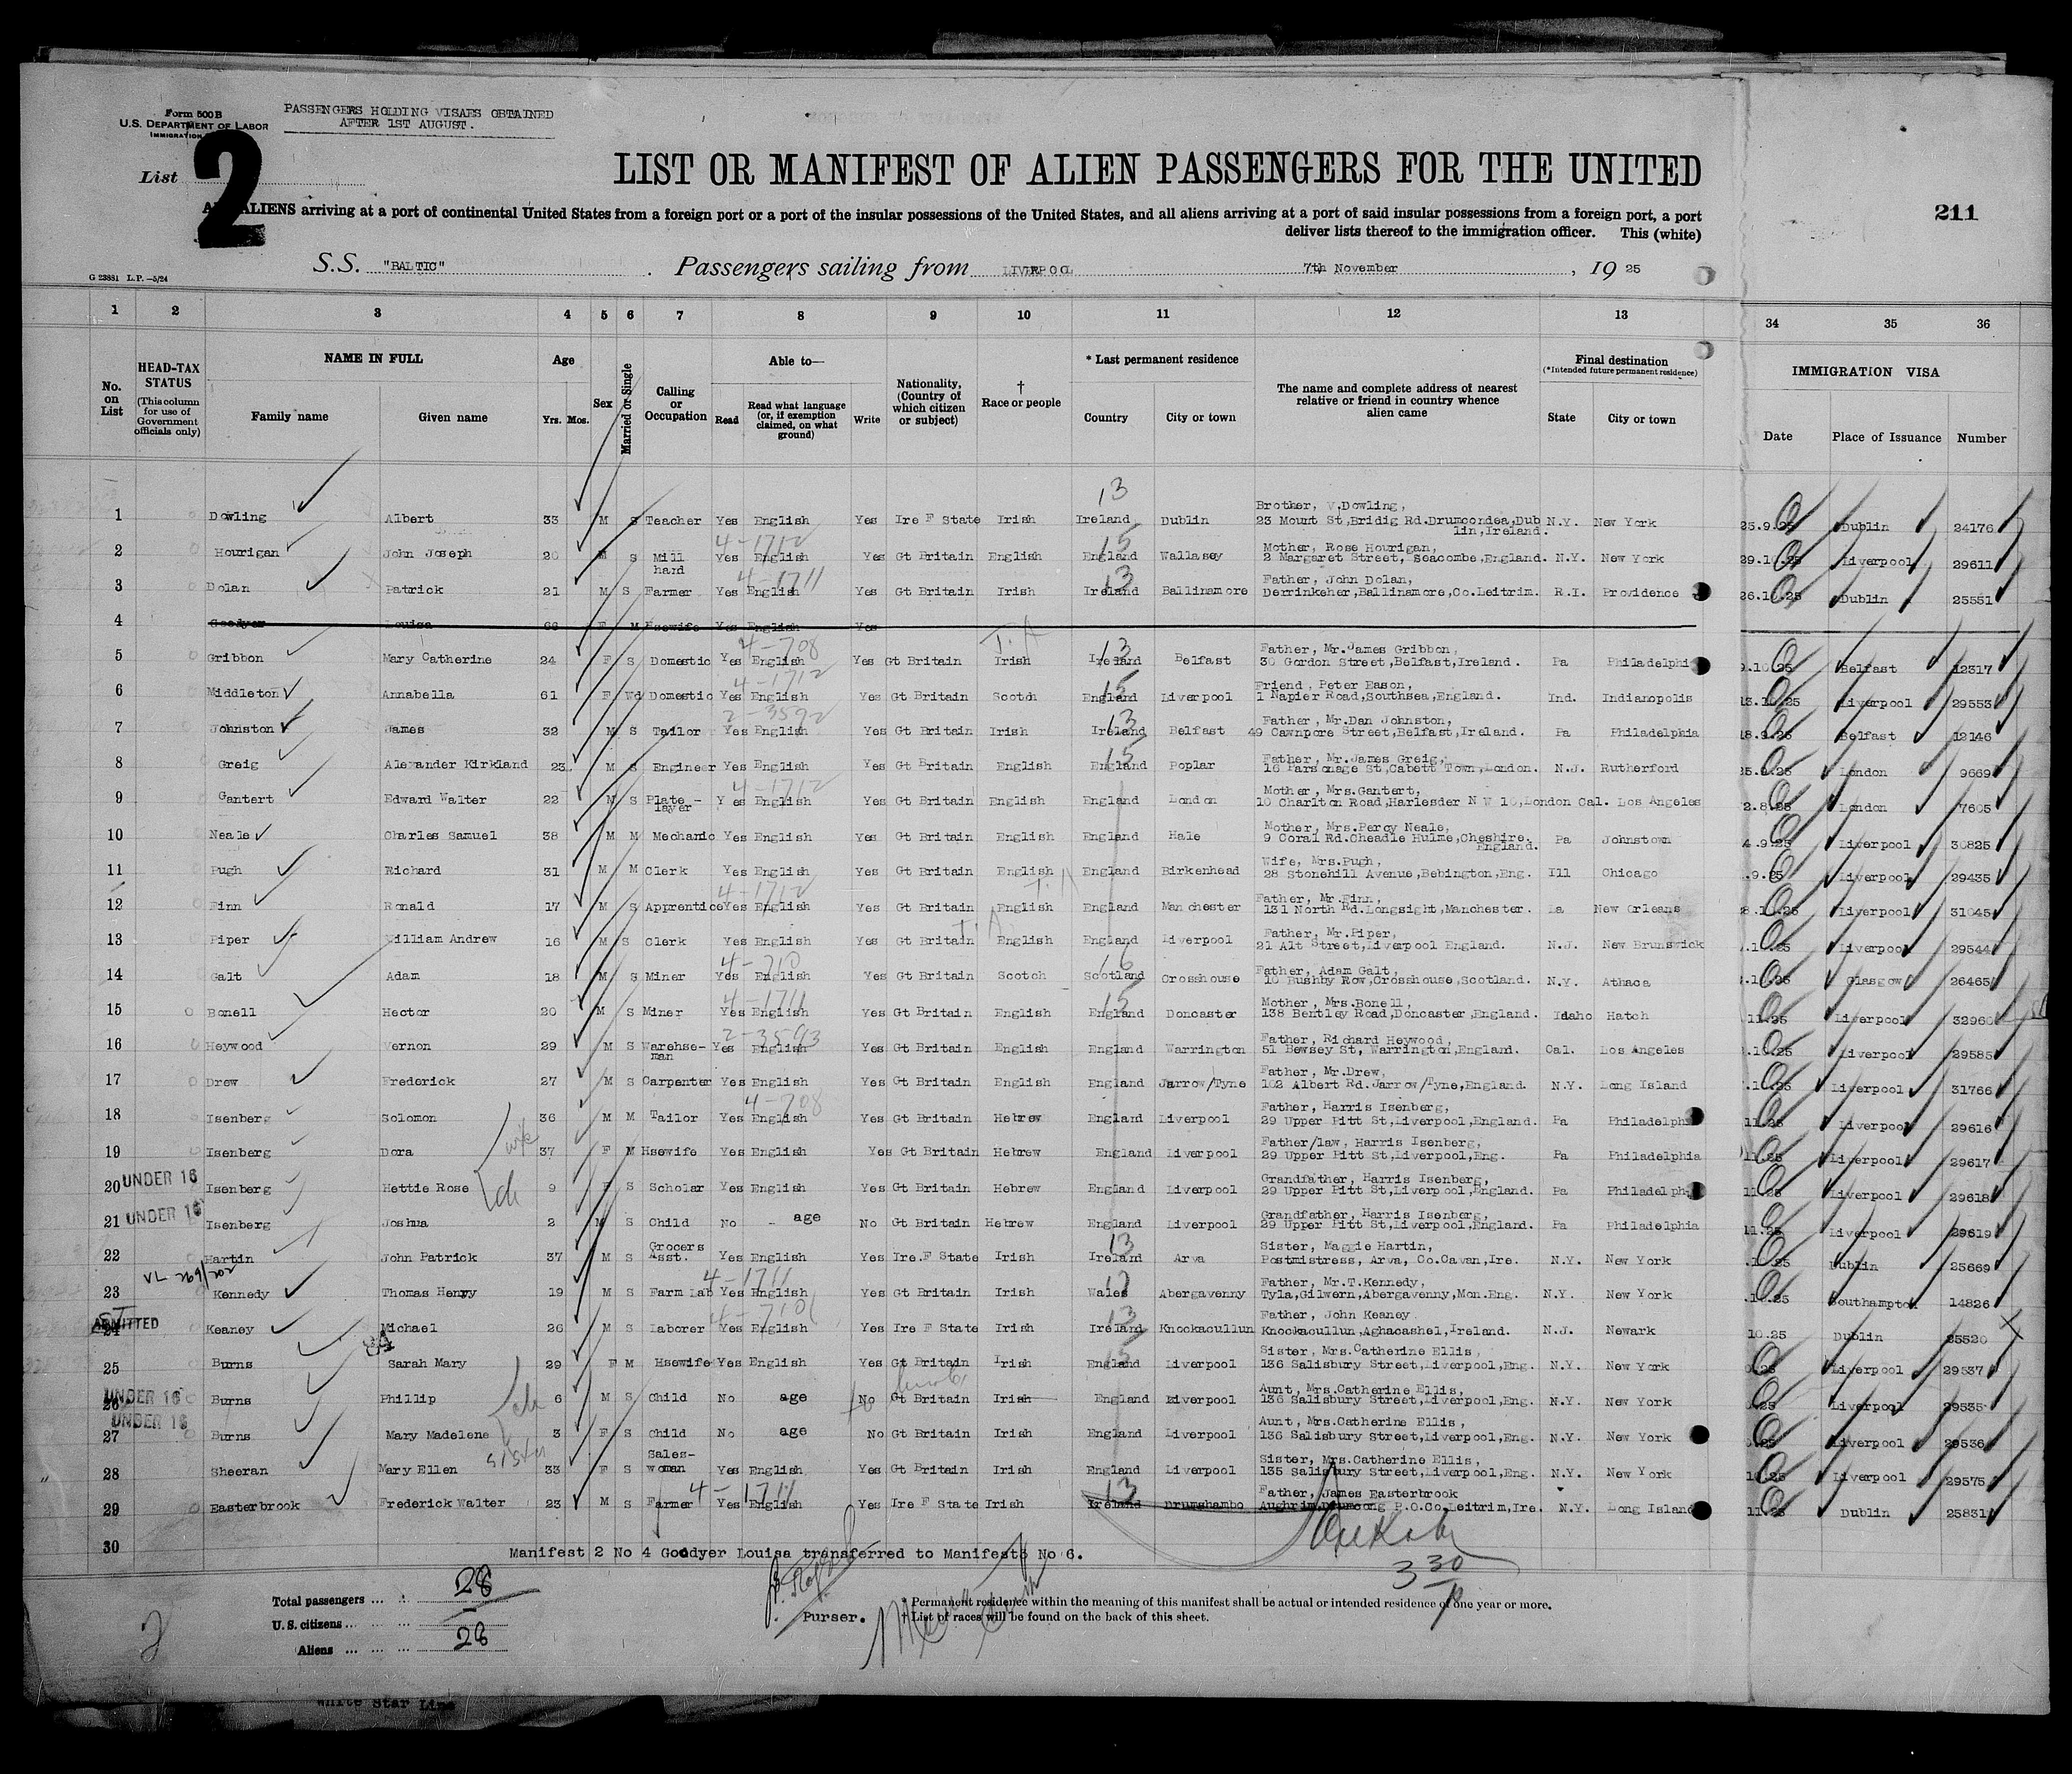 Form 500 B
U.S. DEPARTMENT OF LABOR
PASSENGERS HOLDING VISAES OBTAINED
AFTER 1ST AUGUST.
List 2
LIST OR MANIFEST OF ALIEN PASSENGERS FOR THE UNITED
ALIENS arriving at a port of continental United States from a foreign port or a port of the insular possessions of the United States, and all aliens arriving at a port of said insular possessions from a foreign port, a port
deliver lists thereof to the immigration officer. This (white)
211
G 23881 L.P.—5/24
S.S. "BALTIC" Passengers sailing from LIVERPOOL 7th November, 1925
1 2 3 4 5 6 7 8 9 10 11 12 13 34 35 36
No. on List
HEAD-TAX STATUS (This column for use of Government officials only)
NAME IN FULL Family name Given name
Age Yrs. Mos.
Sex
Married or Single
Calling or Occupation
Able to— Read Read what language (or, if exemption claimed, on what ground) Write
Nationality, (Country of which citizen or subject)
† Race or people
* Last permanent residence Country City or town
The name and complete address of nearest relative or friend in country whence alien came
Final destination (*Intended future permanent residence) State City or town
IMMIGRATION VISA Date Place of Issuance Number
13
Brother, V.Dowling,
1 Dowling Albert 33 M S Teacher Yes English Yes Ire F State Irish Ireland Dublin 23 Mount St,Bridig Rd.Drumcondea,Dub N.Y. New York 25.9.25 Dublin 24176
lin,Ireland.
4-1712 15
Mother, Rose Hourigan,
2 Hourigan John Joseph 20 M S Mill Yes English Yes Gt Britain English England Wallasey 2 Margaret Street, Seacombe,England. N.Y. New York 29.10.25 Liverpool 29611
hand
4-1711 13
Father, John Dolan,
3 Dolan Patrick 21 M S Farmer Yes English Yes Gt Britain Irish Ireland Ballinamore Derrinkeher,Ballinamore,Co.Leitrim. R.I. Providence 26.10.25 Dublin 25551
4 Goodyer Louisa 66 F M Hsewife Yes English Yes
4-708 13
Father, Mr.James Gribbon,
5 Gribbon Mary Catherine 24 F S Domestic Yes English Yes Gt Britain Irish Ireland Belfast 30 Gordon Street,Belfast,Ireland. Pa Philadelphi 9.10.25 Belfast 12317
4-1712 15
Friend, Peter Eason,
6 Middleton Annabella 61 F Wd Domestic Yes English Yes Gt Britain Scotch England Liverpool 1 Napier Road,Southsea,England. Ind. Indianopolis 13.10.25 Liverpool 29553
2-3592 13
Father, Mr.Dan Johnston,
7 Johnston James 32 M S Tailor Yes English Yes Gt Britain Irish Ireland Belfast 49 Cawnpore Street,Belfast,Ireland. Pa Philadelphia 18.9.25 Belfast 12146
15
Father, Mr.James Greig,
8 Greig Alexander Kirkland 23 M S Engineer Yes English Yes Gt Britain English England Poplar 16 Parsonage St,Cabett Town,London. N.J. Rutherford London 9669
4-1712
Mother, Mrs.Gantert,
9 Gantert Edward Walter 22 M S Plate- Yes English Yes Gt Britain English England London 10 Charlton Road,Harlesder N W 10,London Cal. Los Angeles 2.8.25 London 7605
layer
Mother, Mrs.Percy Neale,
10 Neale Charles Samuel 38 M M Mechanic Yes English Yes Gt Britain English England Hale 9 Coral Rd.Cheadle Hulme,Cheshire. Pa Johnstown 4.9.25 Liverpool 30825
England.
Wife, Mrs.Pugh,
11 Pugh Richard 31 M M Clerk Yes English Yes Gt Britain English England Birkenhead 28 Stonehill Avenue,Bebington,Eng. Ill Chicago .9.25 Liverpool 29435
4-1712
Father, Mr.Finn,
12 Finn Ronald 17 M S Apprentice Yes English Yes Gt Britain English England Manchester 131 North Rd.Longsight,Manchester. La New Orleans 8.10.25 Liverpool 31045
Father, Mr.Piper,
13 Piper William Andrew 16 M S Clerk Yes English Yes Gt Britain English England Liverpool 21 Alt Street,Liverpool England. N.J. New Brunswick .10.25 Liverpool 29544
4-710 16
Father, Adam Galt,
14 Galt Adam 18 M S Miner Yes English Yes Gt Britain Scotch Scotland Crosshouse 10 Bushby Row,Crosshouse,Scotland. N.Y. Athaca .10.25 Glasgow 26465
4-1711 15
Mother, Mrs.Bonell,
15 Bonell Hector 20 M S Miner Yes English Yes Gt Britain English England Doncaster 138 Bentley Road,Doncaster,England. Idaho Hatch 11.25 Liverpool 32960
2-3593
Father, Richard Heywood,
16 Heywood Vernon 29 M S Warehse- Yes English Yes Gt Britain English England Warrington 51 Bewsey St, Warrington,England. Cal. Los Angeles .10.25 Liverpool 29585
man
Father, Mr.Drew,
17 Drew Frederick 27 M S Carpenter Yes English Yes Gt Britain English England Jarrow/Tyne 102 Albert Rd.Jarrow/Tyne,England. N.Y. Long Island .10.25 Liverpool 31766
4-708
Father, Harris Isenberg,
18 Isenberg Solomon 36 M M Tailor Yes English Yes Gt Britain Hebrew England Liverpool 29 Upper Pitt St,Liverpool,England. Pa Philadelphi 11.25 Liverpool 29616
wife
Father/law, Harris Isenberg,
19 Isenberg Dora 37 F M Hsewife Yes English Yes Gt Britain Hebrew England Liverpool 29 Upper Pitt St,Liverpool,Eng. Pa Philadelphia 11.25 Liverpool 29617
Grandfather, Harris Isenberg,
20 UNDER 16 Isenberg Hettie Rose ch 9 F S Scholar Yes English Yes Gt Britain Hebrew England Liverpool 29 Upper Pitt St,Liverpool,England. Pa Philadelph 11.25 Liverpool 29618
Grandfather, Harris Isenberg,
21 UNDER 16 Isenberg Joshua 2 M S Child No - age No Gt Britain Hebrew England Liverpool 29 Upper Pitt St,Liverpool,England. Pa Philadelphia 11.25 Liverpool 29619
Grocers 13
Sister, Maggie Hartin,
22 Hartin John Patrick 37 M S Asst. Yes English Yes Ire.F State Irish Ireland Arva Postmistress, Arva, Co.Cavan,Ire. N.Y. New York Dublin 25669
VL 269/202 4-1711
Father, Mr.T.Kennedy,
23 Kennedy Thomas Henry 19 M S Farm Lab Yes English Yes Gt Britain Irish Wales Abergavenny Tyla,Gilwern,Abergavenny,Mon.Eng. N.Y. New York .10.25 Southampton 14826
13
Father, John Keaney
24 ADMITTED Keaney Michael 26 M S Laborer Yes English Yes Ire F State Irish Ireland Knockacullun Knockacullun,Aghacashel,Ireland. N.J. Newark 10.25 Dublin 25520
Sister, Mrs.Catherine Ellis,
25 Burns Sarah Mary 29 F M Hsewife Yes English Yes Gt Britain Irish England Liverpool 136 Salisbury Street,Liverpool,Eng. N.Y. New York Liverpool 29537
Aunt, Mrs.Catherine Ellis,
26 UNDER 16 Burns Phillip ch 6 M S Child No age No Gt Britain Irish England Liverpool 136 Salisbury Street,Liverpool,Eng. N.Y. New York Liverpool 29535
Aunt, Mrs.Catherine Ellis,
27 UNDER 16 Burns Mary Madelene 3 F S Child No age No Gt Britain Irish England Liverpool 136 Salisbury Street,Liverpool,Eng. N.Y. New York Liverpool 29536
sister Sales-
Sister, Mrs.Catherine Ellis,
28 Sheeran Mary Ellen 33 F S woman Yes English Yes Gt Britain Irish England Liverpool 135 Salisbury Street,Liverpool,Eng. N.Y. New York 10.25 Liverpool 29575
4-1711 13
Father, James Easterbrook
29 Easterbrook Frederick Walter 23 M S Farmer Yes English Yes Ire F State Irish Ireland Drumshambo Aughrim,Drumcong P.O.Co.Leitrim,Ire. N.Y. Long Island 11.25 Dublin 25831
30
Manifest 2 No 4 Goodyer Louisa transferred to Manifest No 6.
3 30
Total passengers ... 28
U. S. citizens ...
Aliens ... 28
2
Purser.
* Permanent residence within the meaning of this manifest shall be actual or intended residence of one year or more.
† List of races will be found on the back of this sheet.
White Star Line